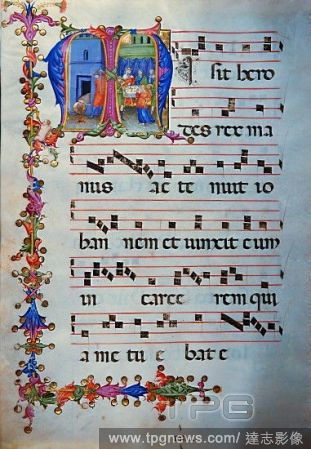 M sit hero
des rex ma
nus ac te nuit io
han nem et uinxit eum
in carce rem qui
a me tu e bat e
TPG
www.tpgnews.com/達志影像